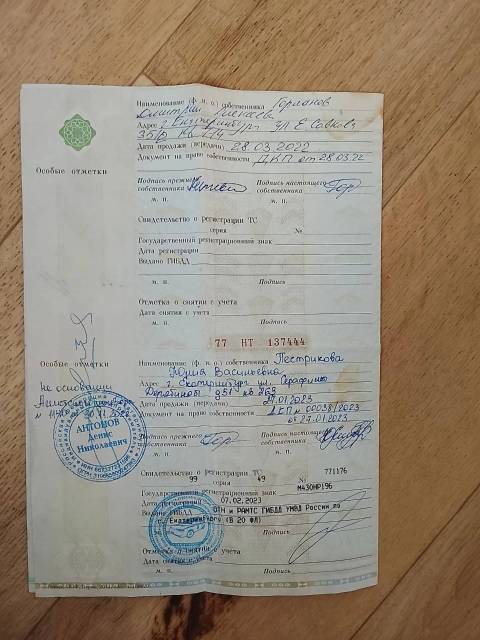 Наименование (ф. и. о.) собственника Горланов
Адрес г. Екатеринбург ул Е Савкова
35
Дата продажи (передачи) 28.03.2022
Документ на право собственности ДКП от 28.03.22
Особые отметки
Подпись прежнего собственника
Подпись настоящего собственника
м. п. м. п.
Свидетельство о регистрации ТС
серия №
Государственный регистрационный знак
Дата регистрации
Выдано ГИБДД
м. п. Подпись
Отметка о снятии с учета
Дата снятия с учета
м. п. Подпись
77 НТ 137444
Особые отметки
Наименование (ф. и. о.) собственника Пестрикова
Юлия Васильевна
на основании
Адрес г. Екатеринбург ул. Серафимы
Дерябиной
Дата продажи (передачи) 27.01.2023
Документ на право собственности ДКП № 00038/2023
от 27.01.2023
АНТОНОВ
Денис
Николаевич
Подпись прежнего собственника
Подпись настоящего собственника
м. п. м. п.
Свидетельство о регистрации ТС
99 серия 49 № 771176
Государственный регистрационный знак М430НР196
Дата регистрации 07.02.2023
Выдано ГИБДД ОТН и РАМТС ГИБДД УМВД России по
г. Екатеринбургу (В 20 ФЛ)
м. п. Подпись
Отметка о снятии с учета
Дата снятия с учета
м. п. Подпись